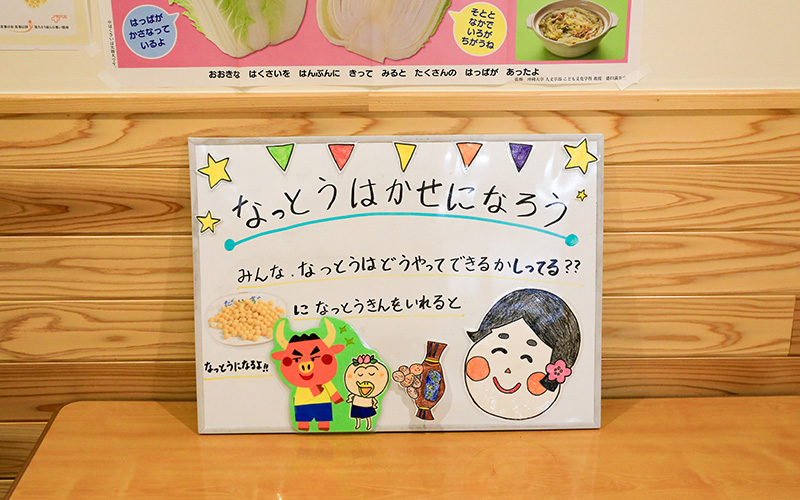 はっぱが
かさなって
いるよ
そととなかで
いろが
ちがうね
おおきな はくさいを はんぶんに きって みると たくさんの はっぱが あったよ
なっとうはかせになろう
みんな、なっとうはどうやってできるかしってる??
に なっとうきんをいれると
なっとうになるよ!!